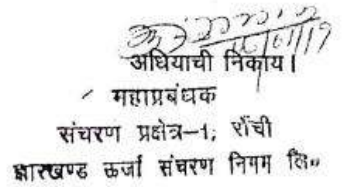 16/01/19
अधियाची निकाय।
महाप्रबंधक
संचरण प्रक्षेत्र–1, राँची
झारखण्ड ऊर्जा संचरण निगम लि॰